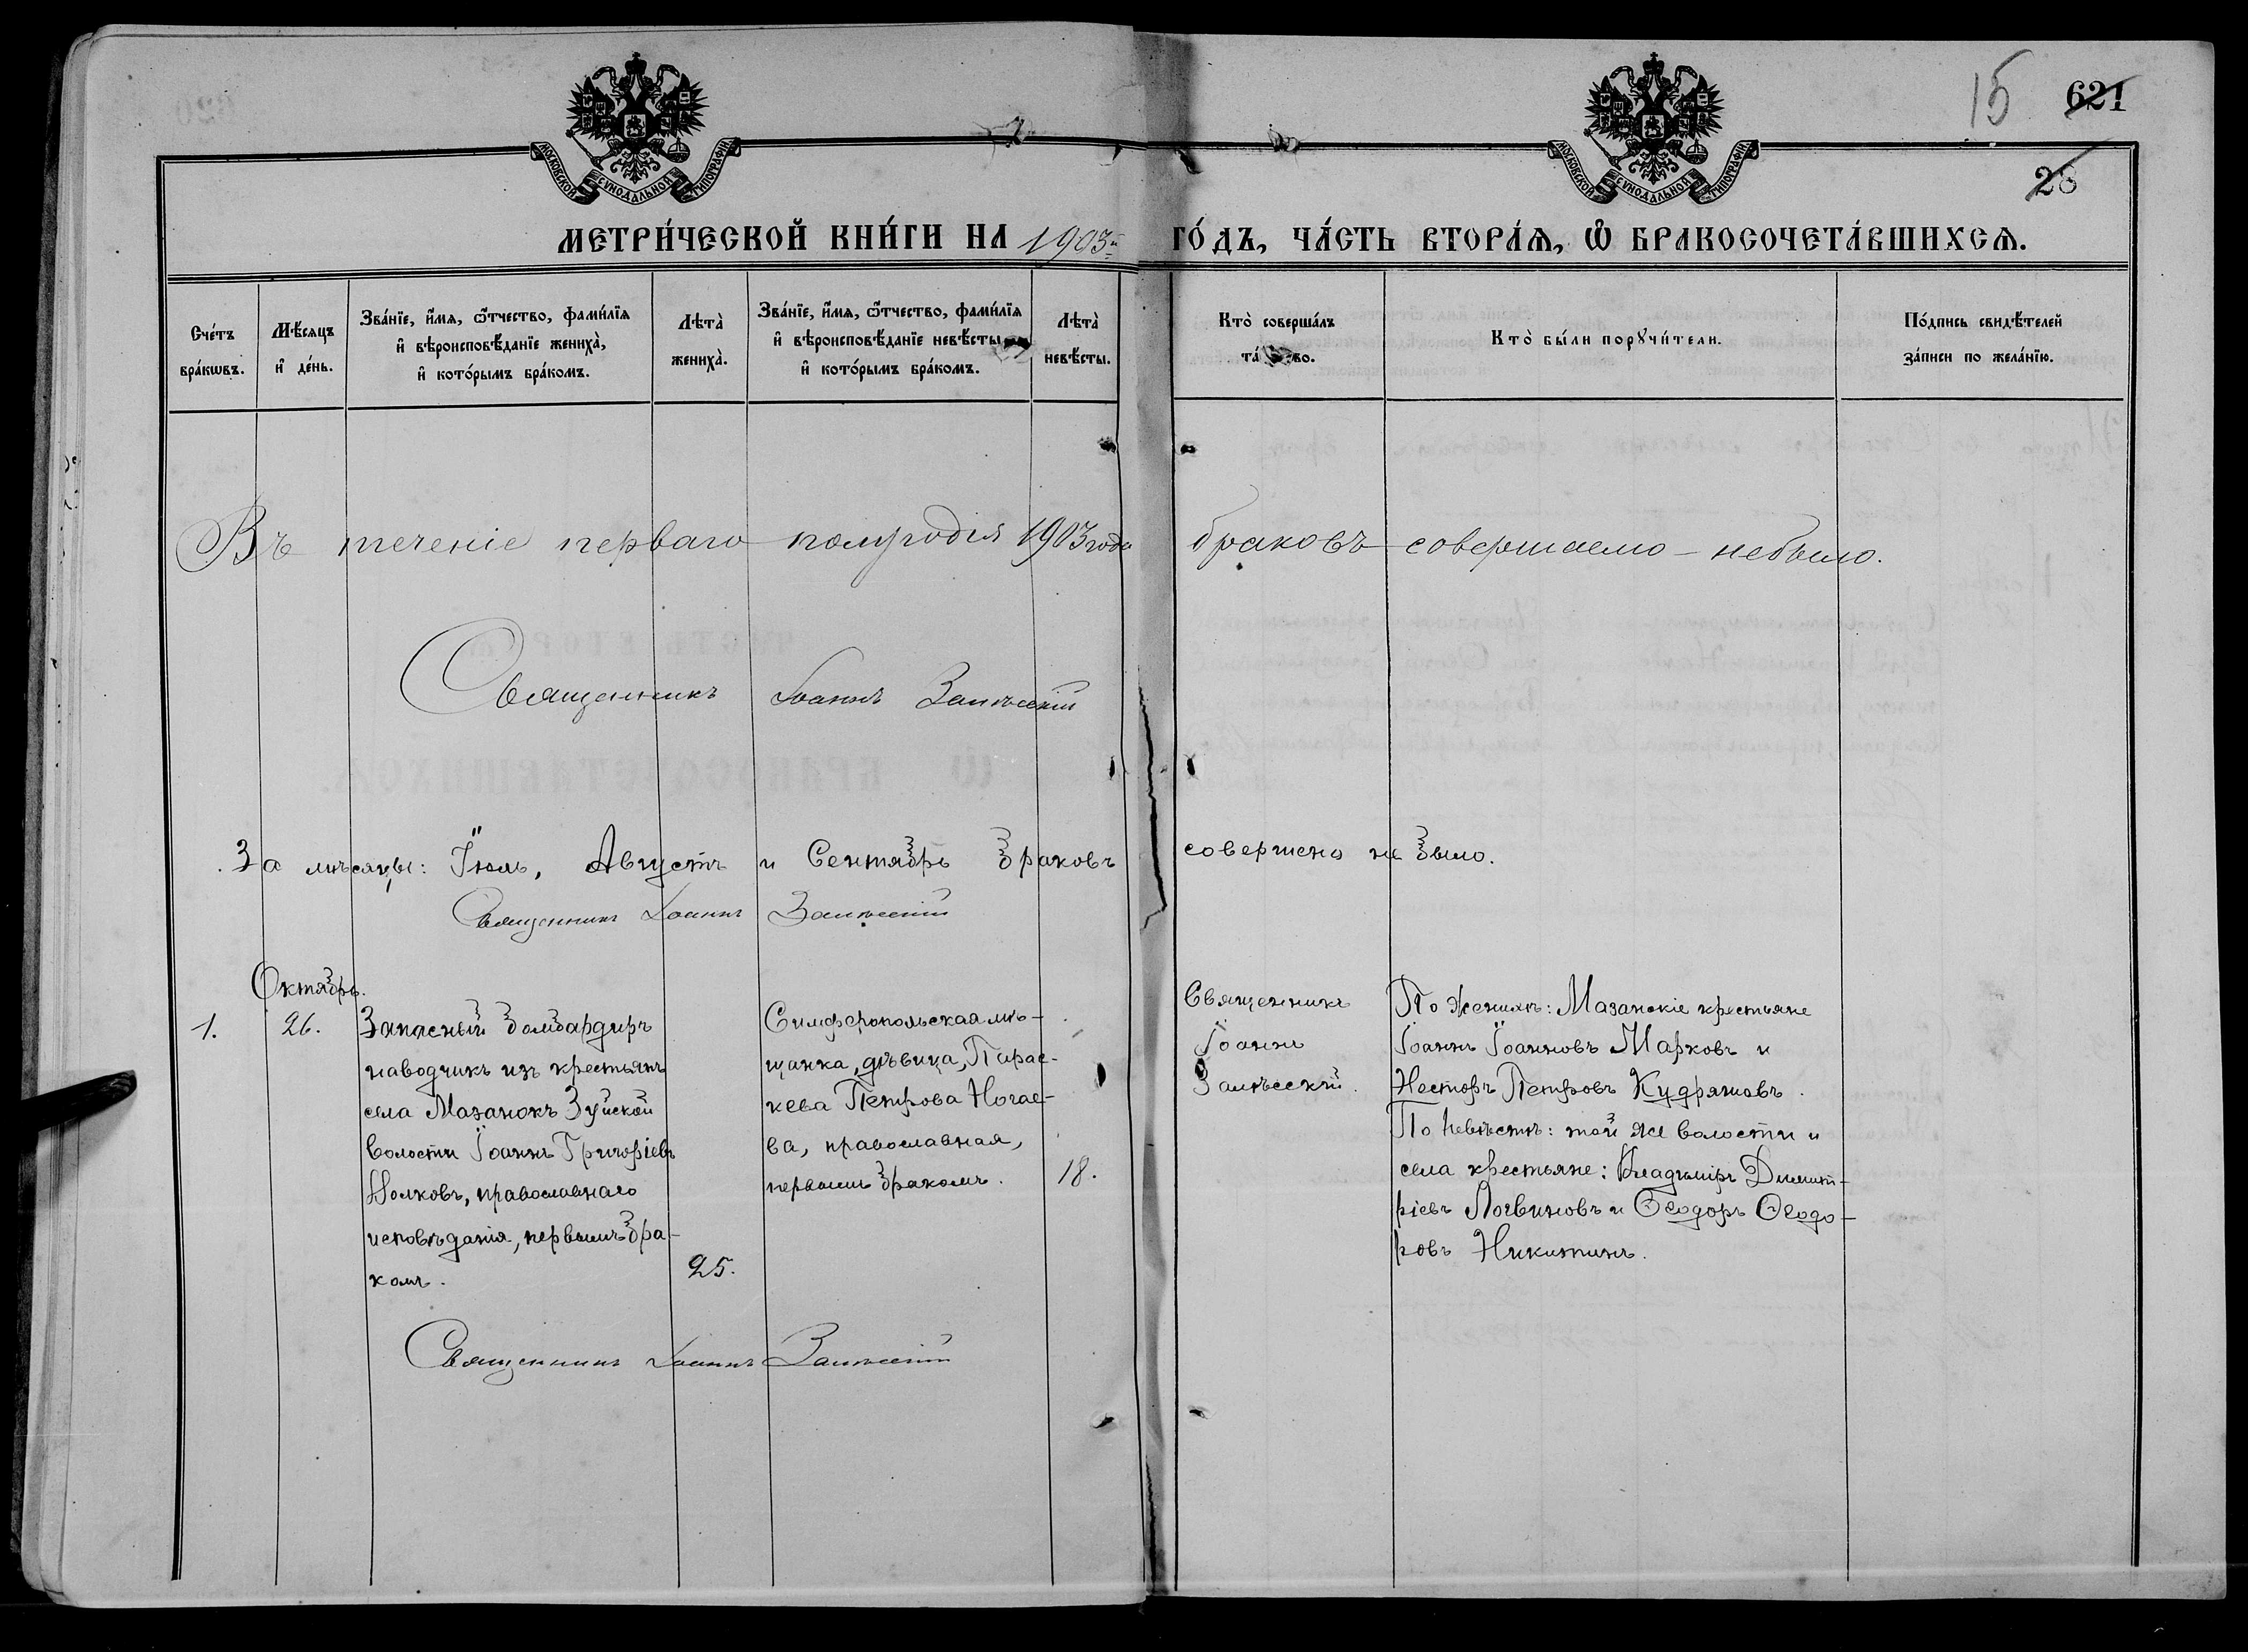 15 621
28
МОСКОВСКОЙ СѴНОДАЛЬНОЙ ТИПОГРАФІИ
МОСКОВСКОЙ СѴНОДАЛЬНОЙ ТИПОГРАФІИ
МЕТРИ́ЧЕСКОЙ КНИ́ГИ НА 1903й ГО́ДЪ, ЧА́СТЬ ВТОРА́Я, Ѡ҆ БРАКОСОЧЕТА́ВШИХСЯ.
Сче́тъ бра́кѡвъ.
Мѣ́сяцъ и҆ де́нь.
Зва́нїе, и҆́мя, ѻ҆́тчество, фами́лїя и҆ вѣроисповѣ́данїе жениха̀, и҆ кото́рымъ бра́комъ.
Лѣта̀ жениха̀.
Зва́нїе, и҆́мя, ѻ҆́тчество, фами́лїя и҆ вѣроисповѣ́данїе невѣ́сты, и҆ кото́рымъ бра́комъ.
Лѣта̀ невѣ́сты.
Кто̀ соверша́лъ та́ во.
Кто̀ бы́ли порꙋчи́тели.
По́дпись свидѣ́телей за́писи по жела́нїю.
Въ теченіе перваго полугодія 1903 года браковъ совершаемо - небыло.
Священникъ Іоаннъ Залѣсскій
За мѣсяцы: Іюль, Августъ и Сентябрь браковъ совершено не было.
Священникъ Іоаннъ Залѣсскій
Октябрь.
1.
26.
Запасный бомбардиръ
наводчикъ изъ крестьянъ
села Мазанокъ Зуйской
волости Іоаннъ Григоріевъ
Волковъ, православнаго
исповѣданія, первымъ бра-
комъ.
25.
Симферопольская мѣ-
щанка, дѣвица, Парас-
кева Петрова Ногае-
ва, православная,
первымъ бракомъ.
18.
Священникъ
Іоаннъ
Залѣсскій.
По женихѣ: Мазанскіе крестьяне
Іоаннъ Іоанновъ Марковъ и
Несторъ Петровъ Кудряшовъ.
По невѣстѣ: той же волости и
села крестьяне: Владиміръ Димит-
ріевъ Логвиновъ и Ѳеодоръ Ѳеодо-
ровъ Никитинъ.
Священникъ Іоаннъ Залѣсскій